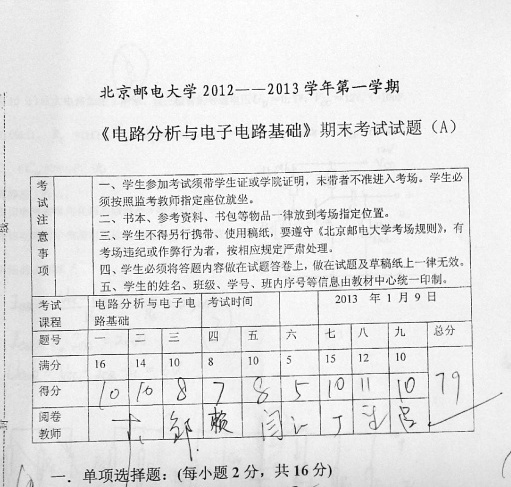 北京邮电大学 2012——2013 学年第一学期
《电路分析与电子电路基础》期末考试试题（A）
考试注意事项
一、学生参加考试须带学生证或学院证明，未带者不准进入考场。学生必
须按照监考教师指定座位就坐。
二、书本、参考资料、书包等物品一律放到考场指定位置。
三、学生不得另行携带、使用稿纸，要遵守《北京邮电大学考场规则》，有
考场违纪或作弊行为者，按相应规定严肃处理。
四、学生必须将答题内容做在试题答卷上，做在试题及草稿纸上一律无效。
五、学生的姓名、班级、学号、班内序号等信息由教材中心统一印制。
考试课程 电路分析与电子电路基础 考试时间 2013 年 1 月 9 日
题号 一 二 三 四 五 六 七 八 九 总分
满分 16 14 10 8 10 5 15 12 10
得分 10 10 8 7 8 5 10 11 10 79
阅卷教师 邹 赖 闫 丁 吕
一．单项选择题：(每小题 2 分，共 16 分)